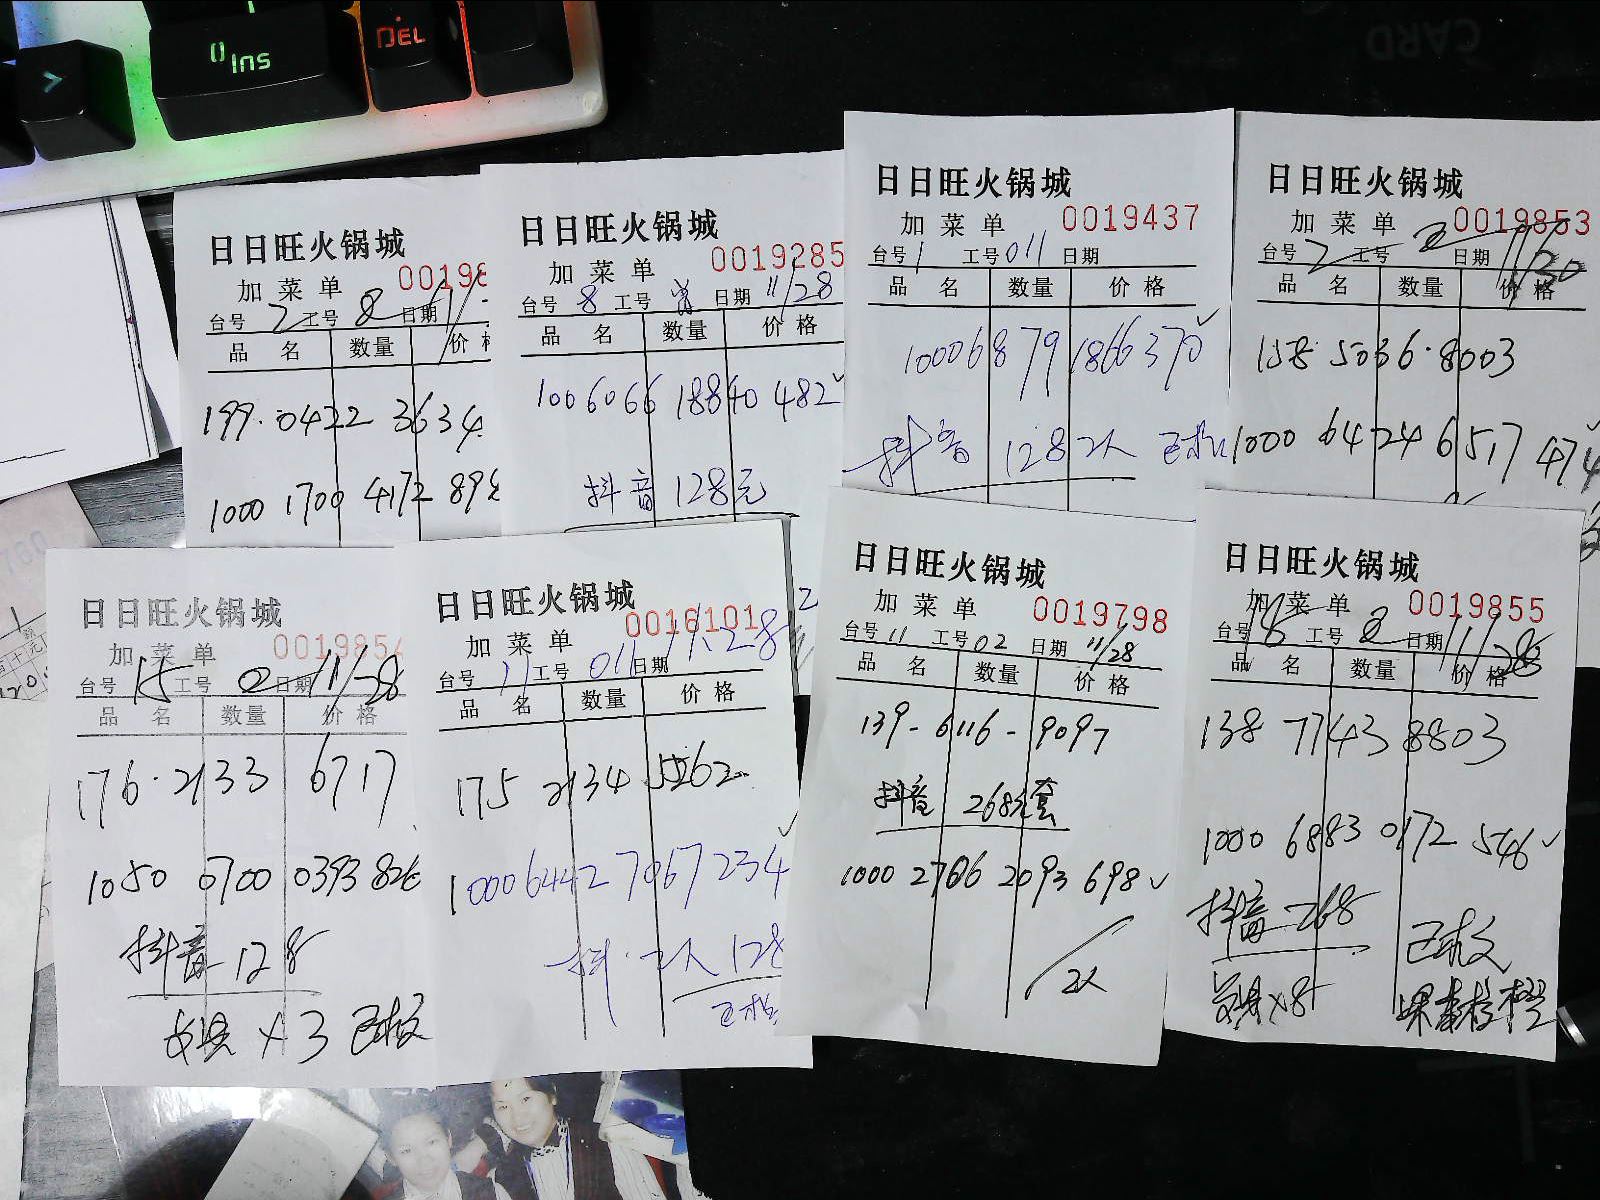 0 Ins
DEL
>
CARD
日日旺火锅城
加菜单 00198
台号 2 工号 8 日期 11/
品名 数量 价格
199.0422 3634
1000 1700 4172 89
日日旺火锅城
加菜单 0019285
台号 8 工号 日期 11/28
品名 数量 价格
1006066 18840 482✓
抖音 128元
日日旺火锅城
加菜单 0019437
台号 1 工号 011 日期
品名 数量 价格
1000 6879 1866 370✓
抖音 128 2人 已核
日日旺火锅城
加菜单 0019853
台号 2 工号 2 日期 11/30
品名 数量 价格
158 5036·8003
1000 6424 6517 474
日日旺火锅城
加菜单 0019854
台号 15 工号 02 日期 11/28
品名 数量 价格
176·2133 6717
1050 0700 0393 826
抖音 128
×3 已核
日日旺火锅城
加菜单 0016101
台号 11 工号 011 日期 11.28
品名 数量 价格
175 2134 5262
1000 6442 7067 234✓
抖.2人 128
已核
日日旺火锅城
加菜单 0019798
台号 11 工号 02 日期 11/28
品名 数量 价格
139-6116-9097
抖音 268元套
1000 2766 2093 698✓
2人
日日旺火锅城
加菜单 0019855
台号 15 工号 2 日期 11/28
品名 数量 价格
138 7743 8803
1000 6883 0172 546✓
抖音 268
已核
×8